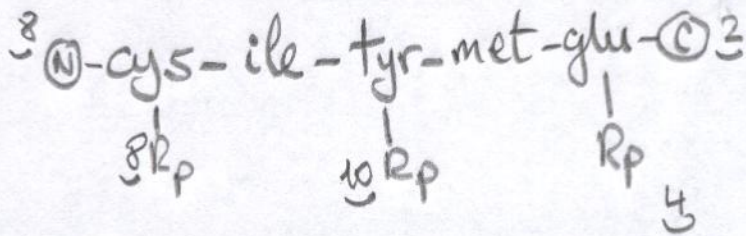 8 N-cys-ile-tyr-met-glu-C 2
8 Rp 10 Rp Rp 4